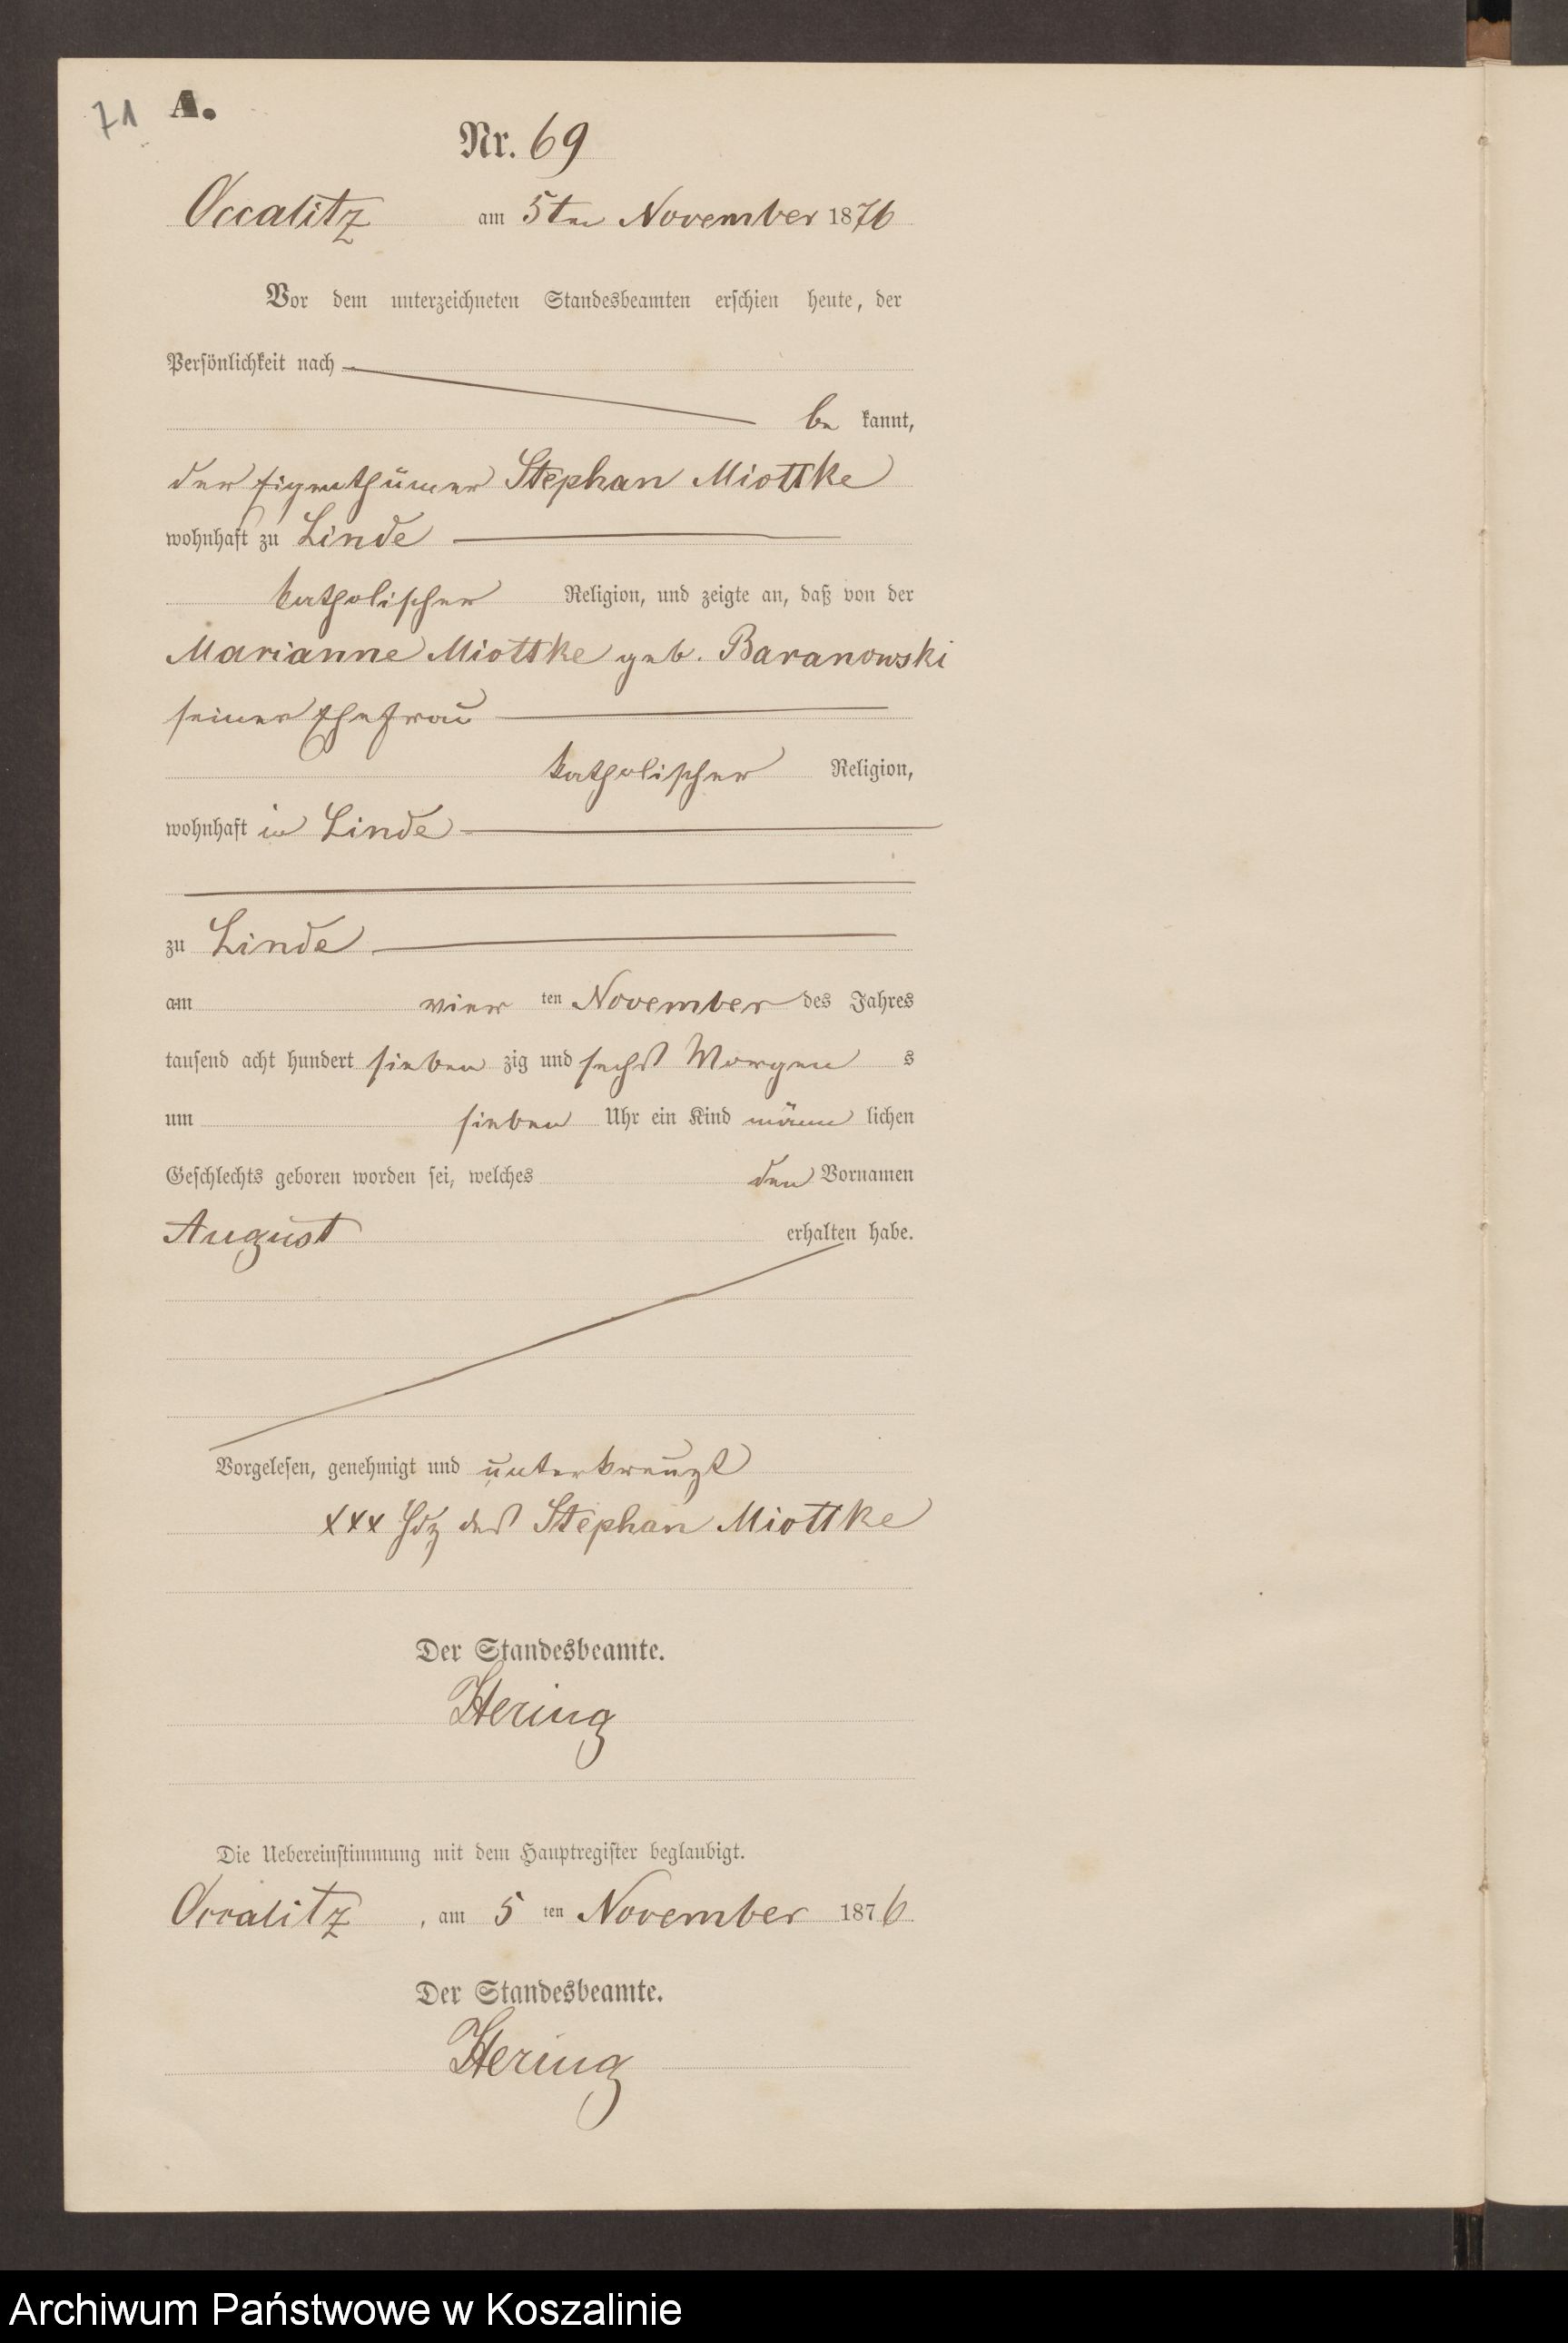 71 A.
Nr. 69
Occalitz am 5ten November 1876
Vor dem unterzeichneten Standesbeamten erschien heute, der
Persönlichkeit nach
be kannt,
der Eigenthümer Stephan Miottke
wohnhaft zu Linde
katholischer Religion, und zeigte an, daß von der
Marianne Miottke geb. Baranowski
seiner Ehefrau
katholischer Religion,
wohnhaft in Linde
zu Linde
am vier ten November des Jahres
tausend acht hundert sieben zig und sechs Morgen s
um sieben Uhr ein Kind männ lichen
Geschlechts geboren worden sei, welches den Vornamen
August erhalten habe.
Vorgelesen, genehmigt und unterkreuzt
xxx Hdz des Stephan Miottke
Der Standesbeamte.
Hering
Die Uebereinstimmung mit dem Hauptregister beglaubigt.
Occalitz, am 5 ten November 1876
Der Standesbeamte.
Hering
Archiwum Państwowe w Koszalinie